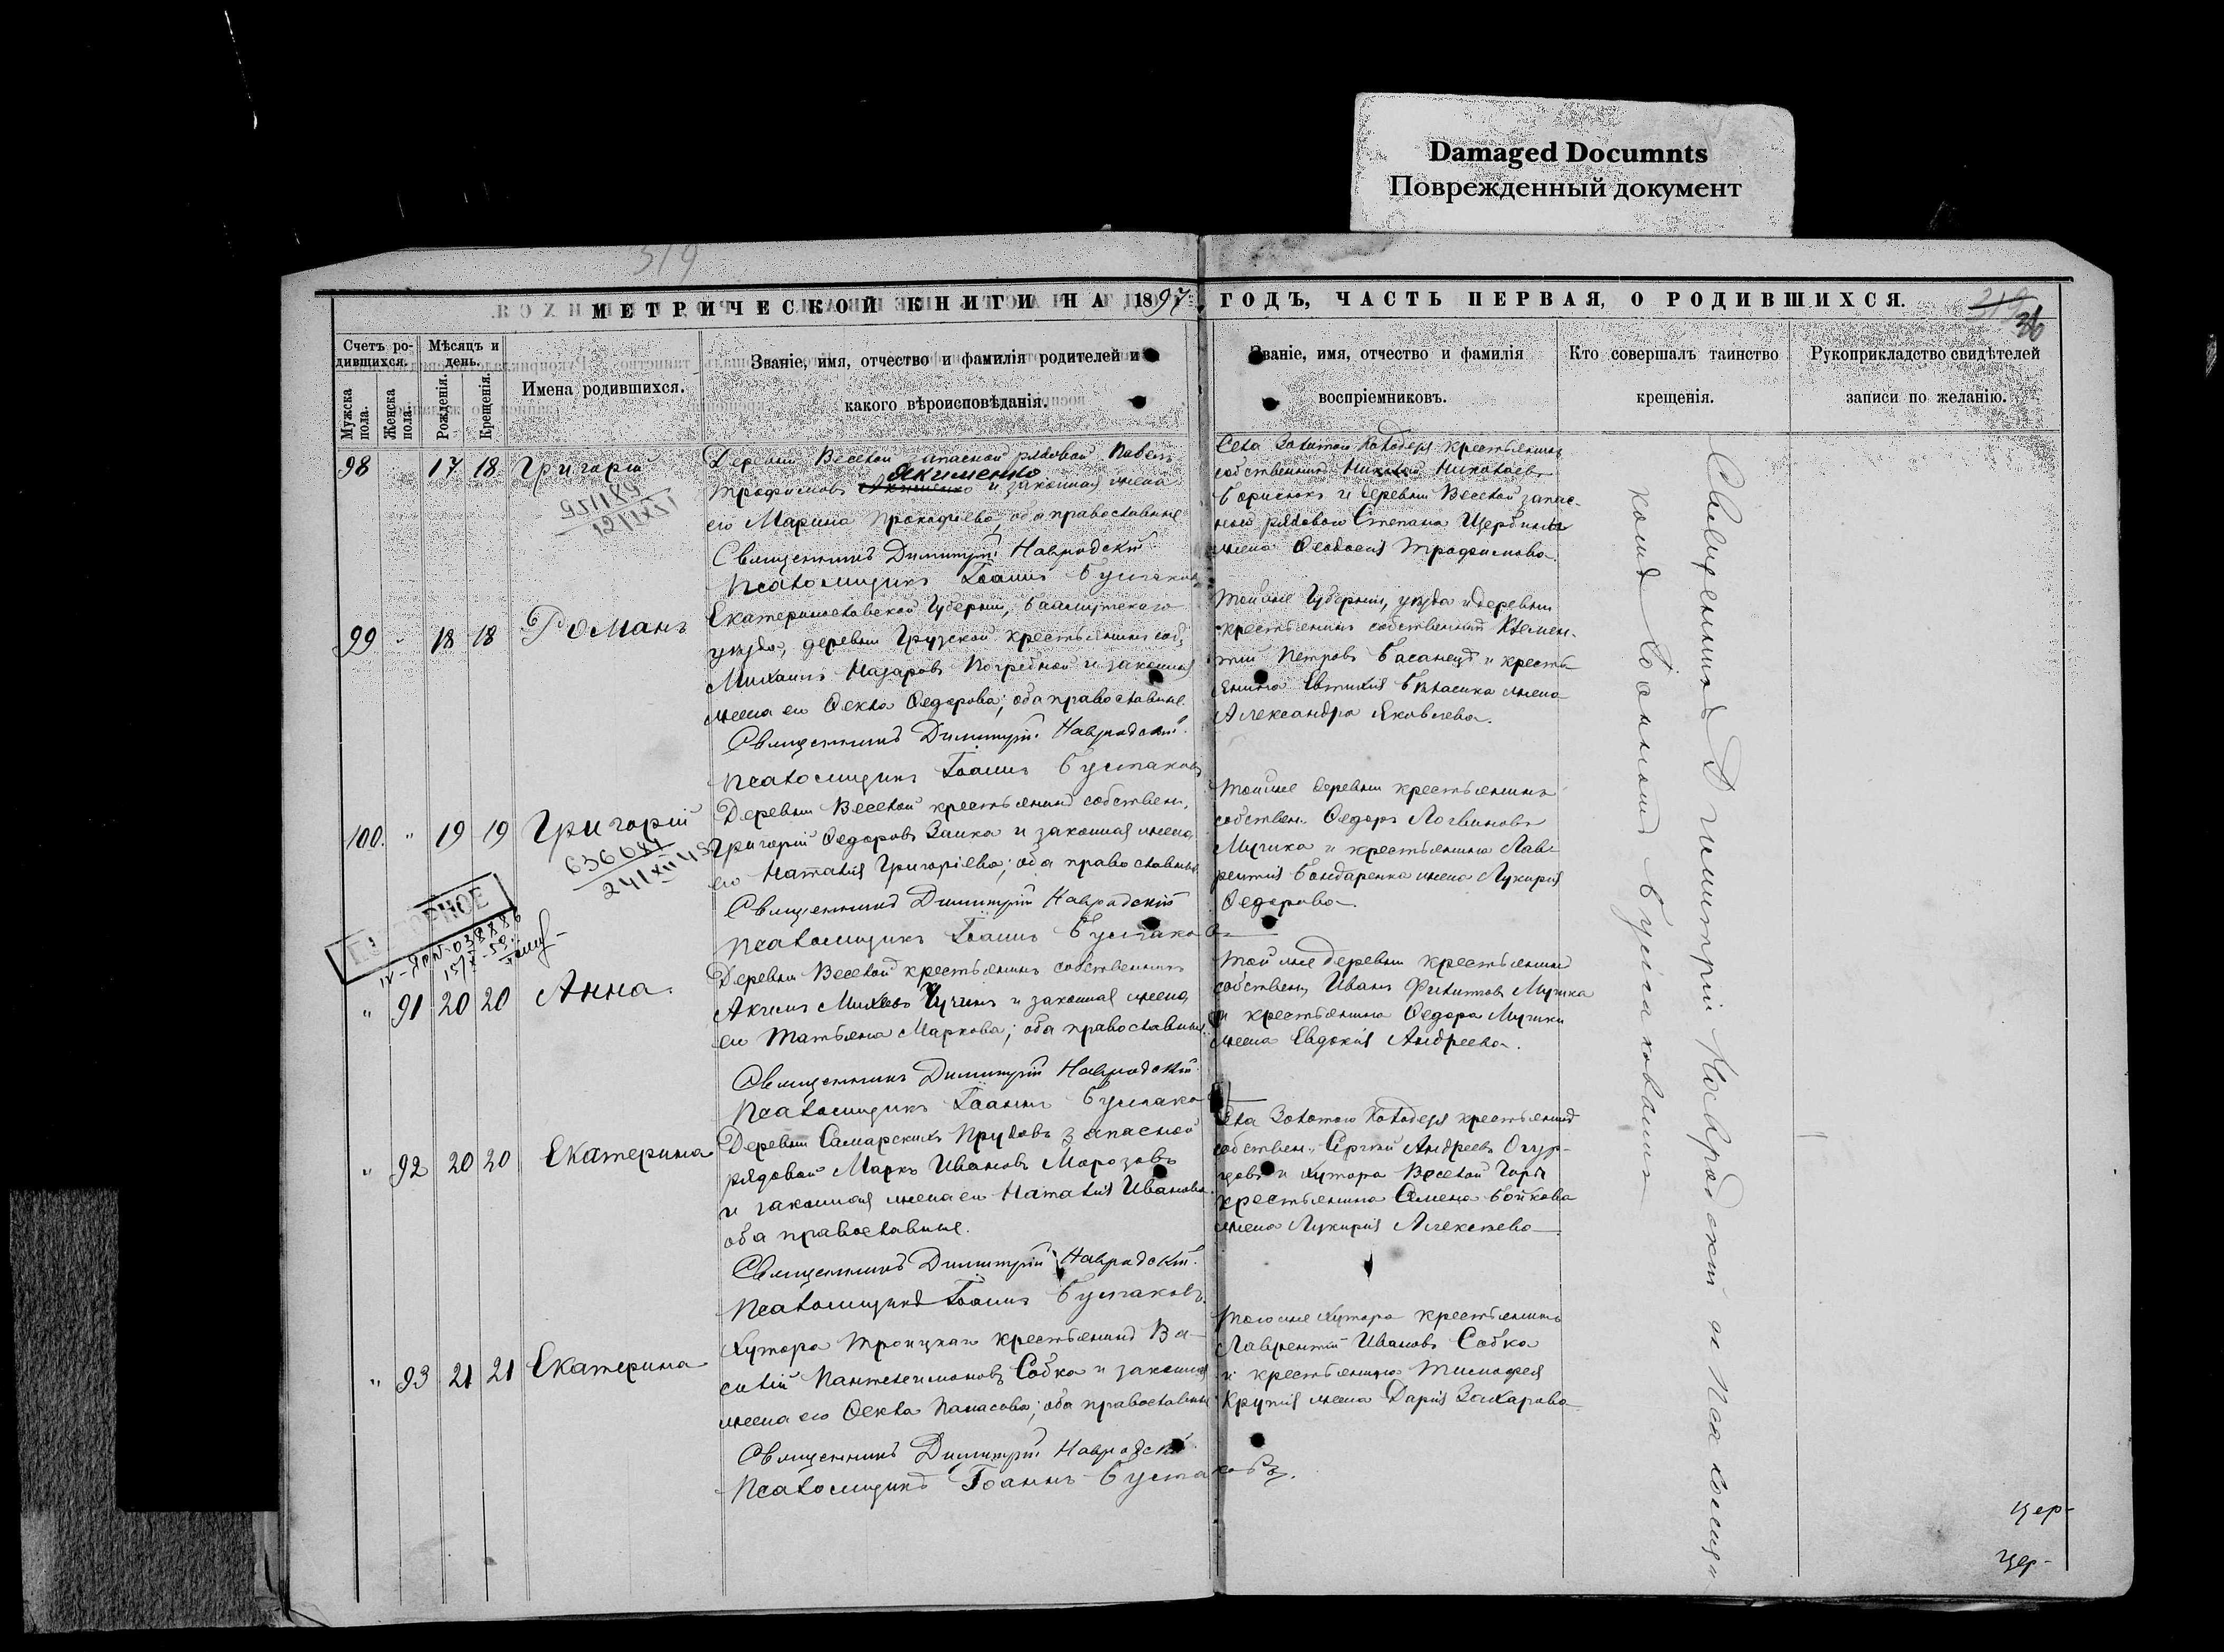 Damaged Documnts
Поврежденный документ
319
МЕТРИЧЕСКОЙ КНИГИ НА 1897 ГОДЪ, ЧАСТЬ ПЕРВАЯ, О РОДИВШИХСЯ.
319
36
Счетъ родившихся.
Мужска пола.
Женска пола.
Мѣсяцъ и день.
Рожденія.
Крещенія.
Имена родившихся.
Званіе, имя, отчество и фамилія родителей и
какого вѣроисповѣданія.
Званіе, имя, отчество и фамилія
воспріемниковъ.
Кто совершалъ таинство
крещенія.
Рукоприкладство свидѣтелей
записи по желанію.
98 17 18 Григорій
Деревни Веселой запасной рядовой Павелъ
Якименко
Трофимовъ и законная жена
его Марина Прокофіева, оба православные
Священникъ Димитрій Навродскій
Псаломщикъ Іоаннъ Бутаковъ
Села Золотого Колодезя крестьянинъ
собственникъ Николай Николаевъ
Борисюкъ и деревни Веселой запас-
ного рядового Степана Щербины
жена Ѳеодосія Трофимова.
99 " 18 18 Романъ
Екатеринославской Губерніи, Бахмутскаго
уѣзда, деревни Грузской крестьянинъ соб.
Михаилъ Назаровъ Погребной и законная
жена его Ѳекла Ѳедорова; оба православные.
Священникъ Димитрій Навродскій.
Псаломщикъ Іоаннъ Бутаковъ
Той же Губерніи, уѣзда и деревни
крестьянинъ собственникъ Клемен-
тій Петровъ Басанецъ и кресть-
янина Евтихія жена
Александра Яковлева.
100. " 19 19 Григорій
636684
Деревни Веселой крестьянинъ собствен.
Григорій Ѳедоровъ Заика и законная жена
его Наталія Григоріева; оба православные.
Священникъ Димитрій Навродскій
Псаломщикъ Іоаннъ Бутаковъ
Той же деревни крестьянинъ
собствен. Ѳедоръ Логвиновъ
Мучика и крестьянина Лав-
рентія Бондаренка жена Лукерія
Ѳедорова.
" 91 20 20 Анна.
Деревни Веселой крестьянинъ собственникъ
Акимъ Михеевъ Чучинъ и законная жена
его Татьяна Маркова; оба православные.
Священникъ Димитрій Навродскій
Псаломщикъ Іоаннъ Бутаковъ
Той же деревни крестьянинъ
собствен. Иванъ Филиповъ Мучика
и крестьянина Ѳедора Мучики
жена Евдокія Андреева.
" 92 20 20 Екатерина
Деревни Самарскихъ Прудовъ запасной
рядовой Маркъ Ивановъ Морозовъ
и законная жена его Наталія Иванова
оба православные.
Священникъ Димитрій Навродскій.
Псаломщикъ Іоаннъ Бутаковъ.
Села Золотого Колодезя крестьянинъ
собствен. Сергѣй Андреевъ Огур-
цовъ и хутора Веселой Горы
крестьянина Семена Бойкова
жена Лукерія Алексѣева.
" 93 21 21 Екатерина
Хутора Троицкаго крестьянинъ Ва-
силій Пантелеимоновъ Собка и законная
жена его Ѳекла Панасова; оба православные
Священникъ Димитрій Навродскій.
Псаломщикъ Іоаннъ Бутаковъ.
Того же хутора крестьянинъ
Лаврентій Ивановъ Собка
и крестьянина Тимофея
жена Дарія Захарова.
Священникъ Димитрій Навродскій съ Псаломщи-
комъ Іоанномъ Бутаковымъ
цер-
цер-